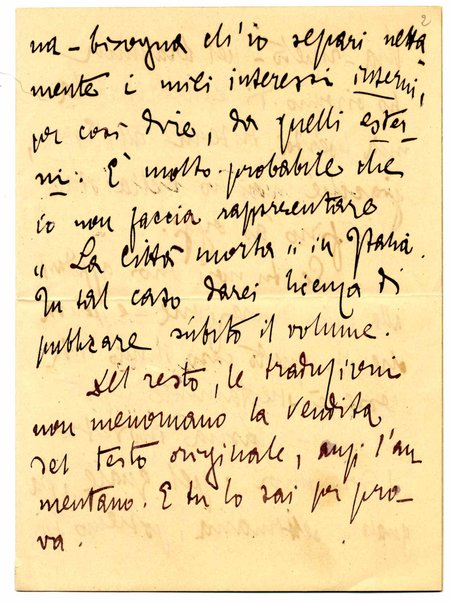 2
na - bisogna ch'io separi netta
mente i miei interessi interni,
per così dire, da quelli ester
ni. È molto probabile che
io non faccia rappresentare
„ La Città morta „ in Italia.
In tal caso darei licenza di
pubblicare sùbito il volume.
Del resto, le traduzioni
non menomano la vendita
del testo originale, anzi l'au
mentano. E tu lo sai per pro-
va.